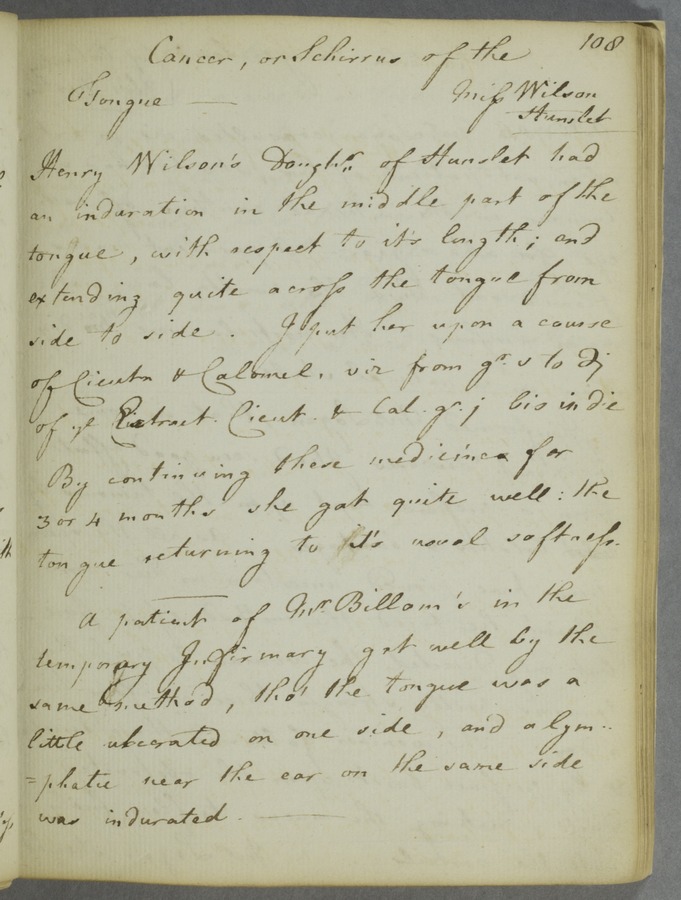 108
Cancer, or Schirrus of the
Tongue — Miss Wilson
Hunslet
Henry Wilson's Daughr. of Hunslet had
an induration in the middle part of the
tongue, with respect to it's length; and
extending quite across the tongue from
side to side. I put her upon a course
of Cicuta & Calomel. viz from gr. v to ℈j
of ye Extract. Cicut. & Cal. gr. j bis in die
By continuing these medicines for
3 or 4 months she got quite well: the
tongue returning to it's usual softness.
A patient of Mr. Billam's in the
temporary Infirmary got well by the
same method, tho' the tongue was a
little ulcerated on one side, and a lym-
=phatic near the ear on the same side
was indurated. —